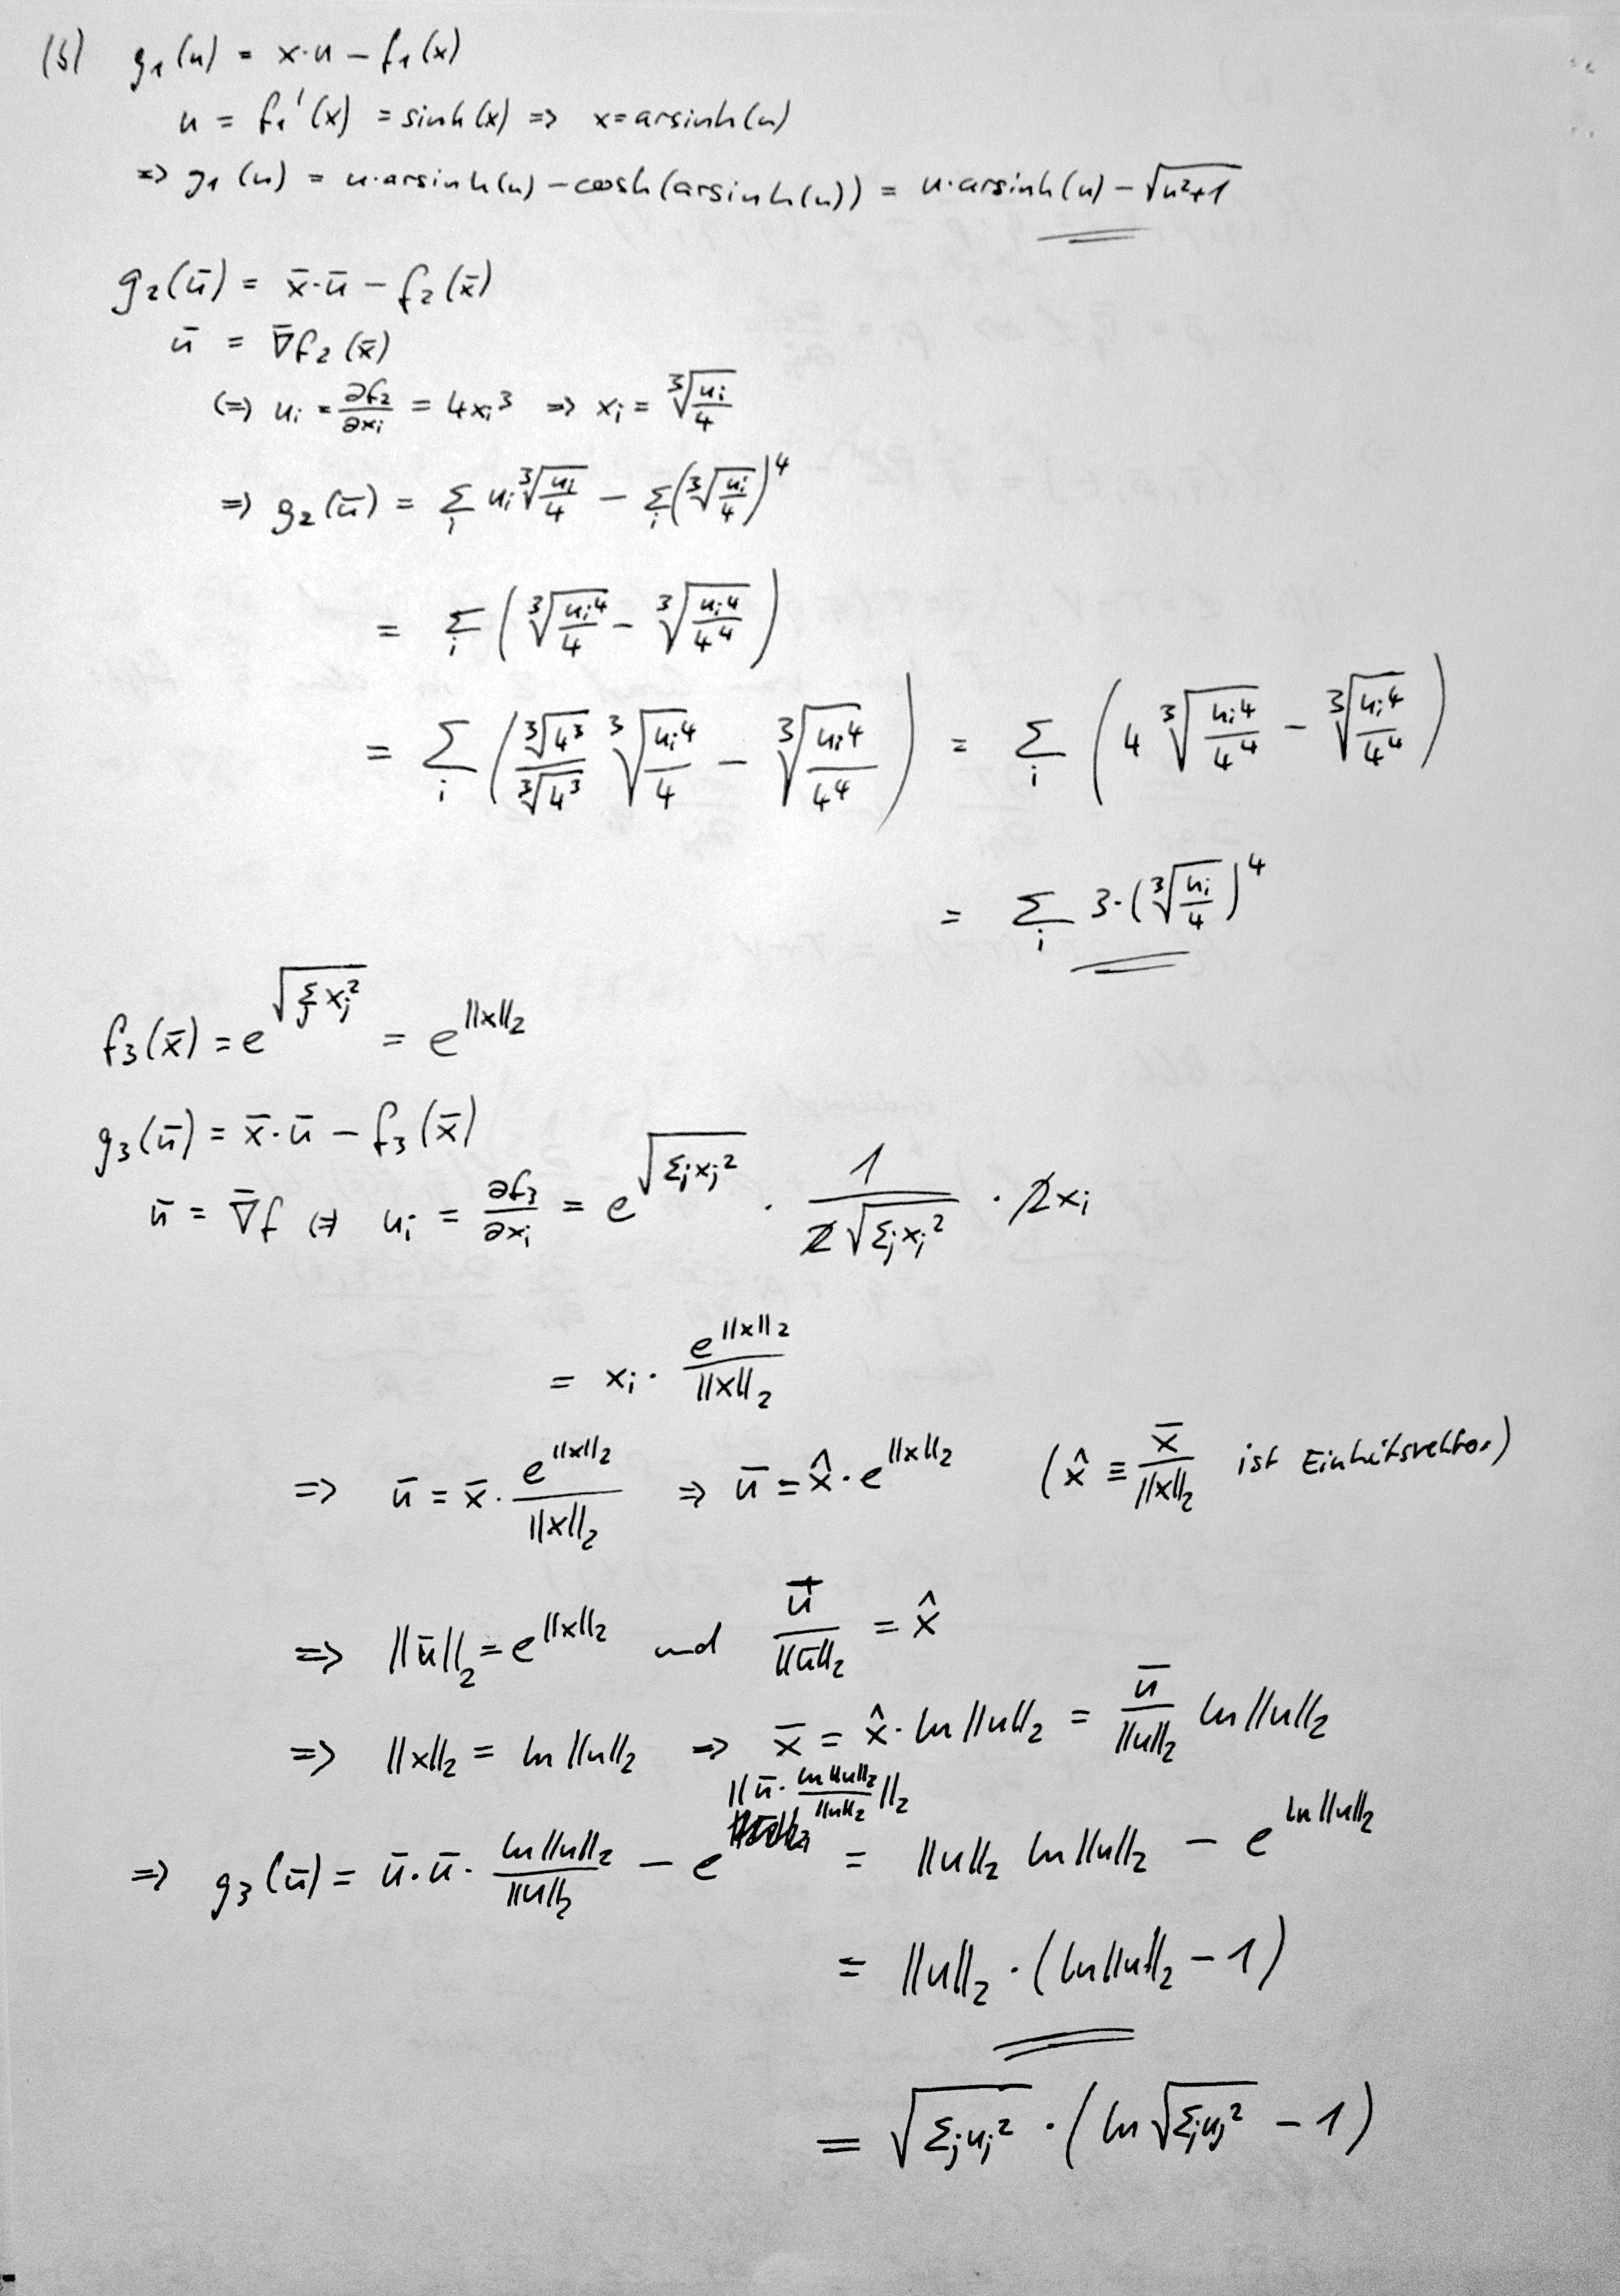 (b) g₁(u) = x·u − f₁(x)
u = f₁'(x) = sinh(x) => x = arsinh(u)
=> g₁(u) = u·arsinh(u) − cosh(arsinh(u)) = u·arsinh(u) − √(u²+1)
g₂(ū) = x̄·ū − f₂(x̄)
ū = ∇̄f₂(x̄)
(=) uᵢ = ∂f₂/∂xᵢ = 4xᵢ³ => xᵢ = ³√(uᵢ/4)
=> g₂(ū) = Σᵢ uᵢ ³√(uᵢ/4) − Σᵢ (³√(uᵢ/4))⁴
= Σᵢ (³√(uᵢ⁴/4) − ³√(uᵢ⁴/4⁴))
= Σᵢ (³√4³/³√4³ ³√(uᵢ⁴/4) − ³√(uᵢ⁴/4⁴)) = Σᵢ (4 ³√(uᵢ⁴/4⁴) − ³√(uᵢ⁴/4⁴))
= Σᵢ 3·(³√(uᵢ/4))⁴
f₃(x̄) = e^√(Σⱼ xⱼ²) = e^||x||₂
g₃(ū) = x̄·ū − f₃(x̄)
ū = ∇̄f (=) uᵢ = ∂f₃/∂xᵢ = e^√(Σⱼxⱼ²) · 1/(2√(Σⱼxⱼ²)) · 2xᵢ
= xᵢ · e^||x||₂/||x||₂
=> ū = x̄ · e^||x||₂/||x||₂ => ū = x̂·e^||x||₂ (x̂ ≡ x̄/||x||₂ ist Einheitsvektor)
=> ||ū||₂ = e^||x||₂ und ū/||ū||₂ = x̂
=> ||x||₂ = ln||u||₂ => x̄ = x̂·ln||u||₂ = ū/||u||₂ ln||u||₂
=> g₃(ū) = ū·ū· ln||u||₂/||u||₂ − e^||ū· ln||u||₂/||u||₂||₂ = ||u||₂ ln||u||₂ − e^ln||u||₂
= ||u||₂ · (ln||u||₂ − 1)
= √(Σⱼuⱼ²) · (ln √(Σⱼuⱼ²) − 1)